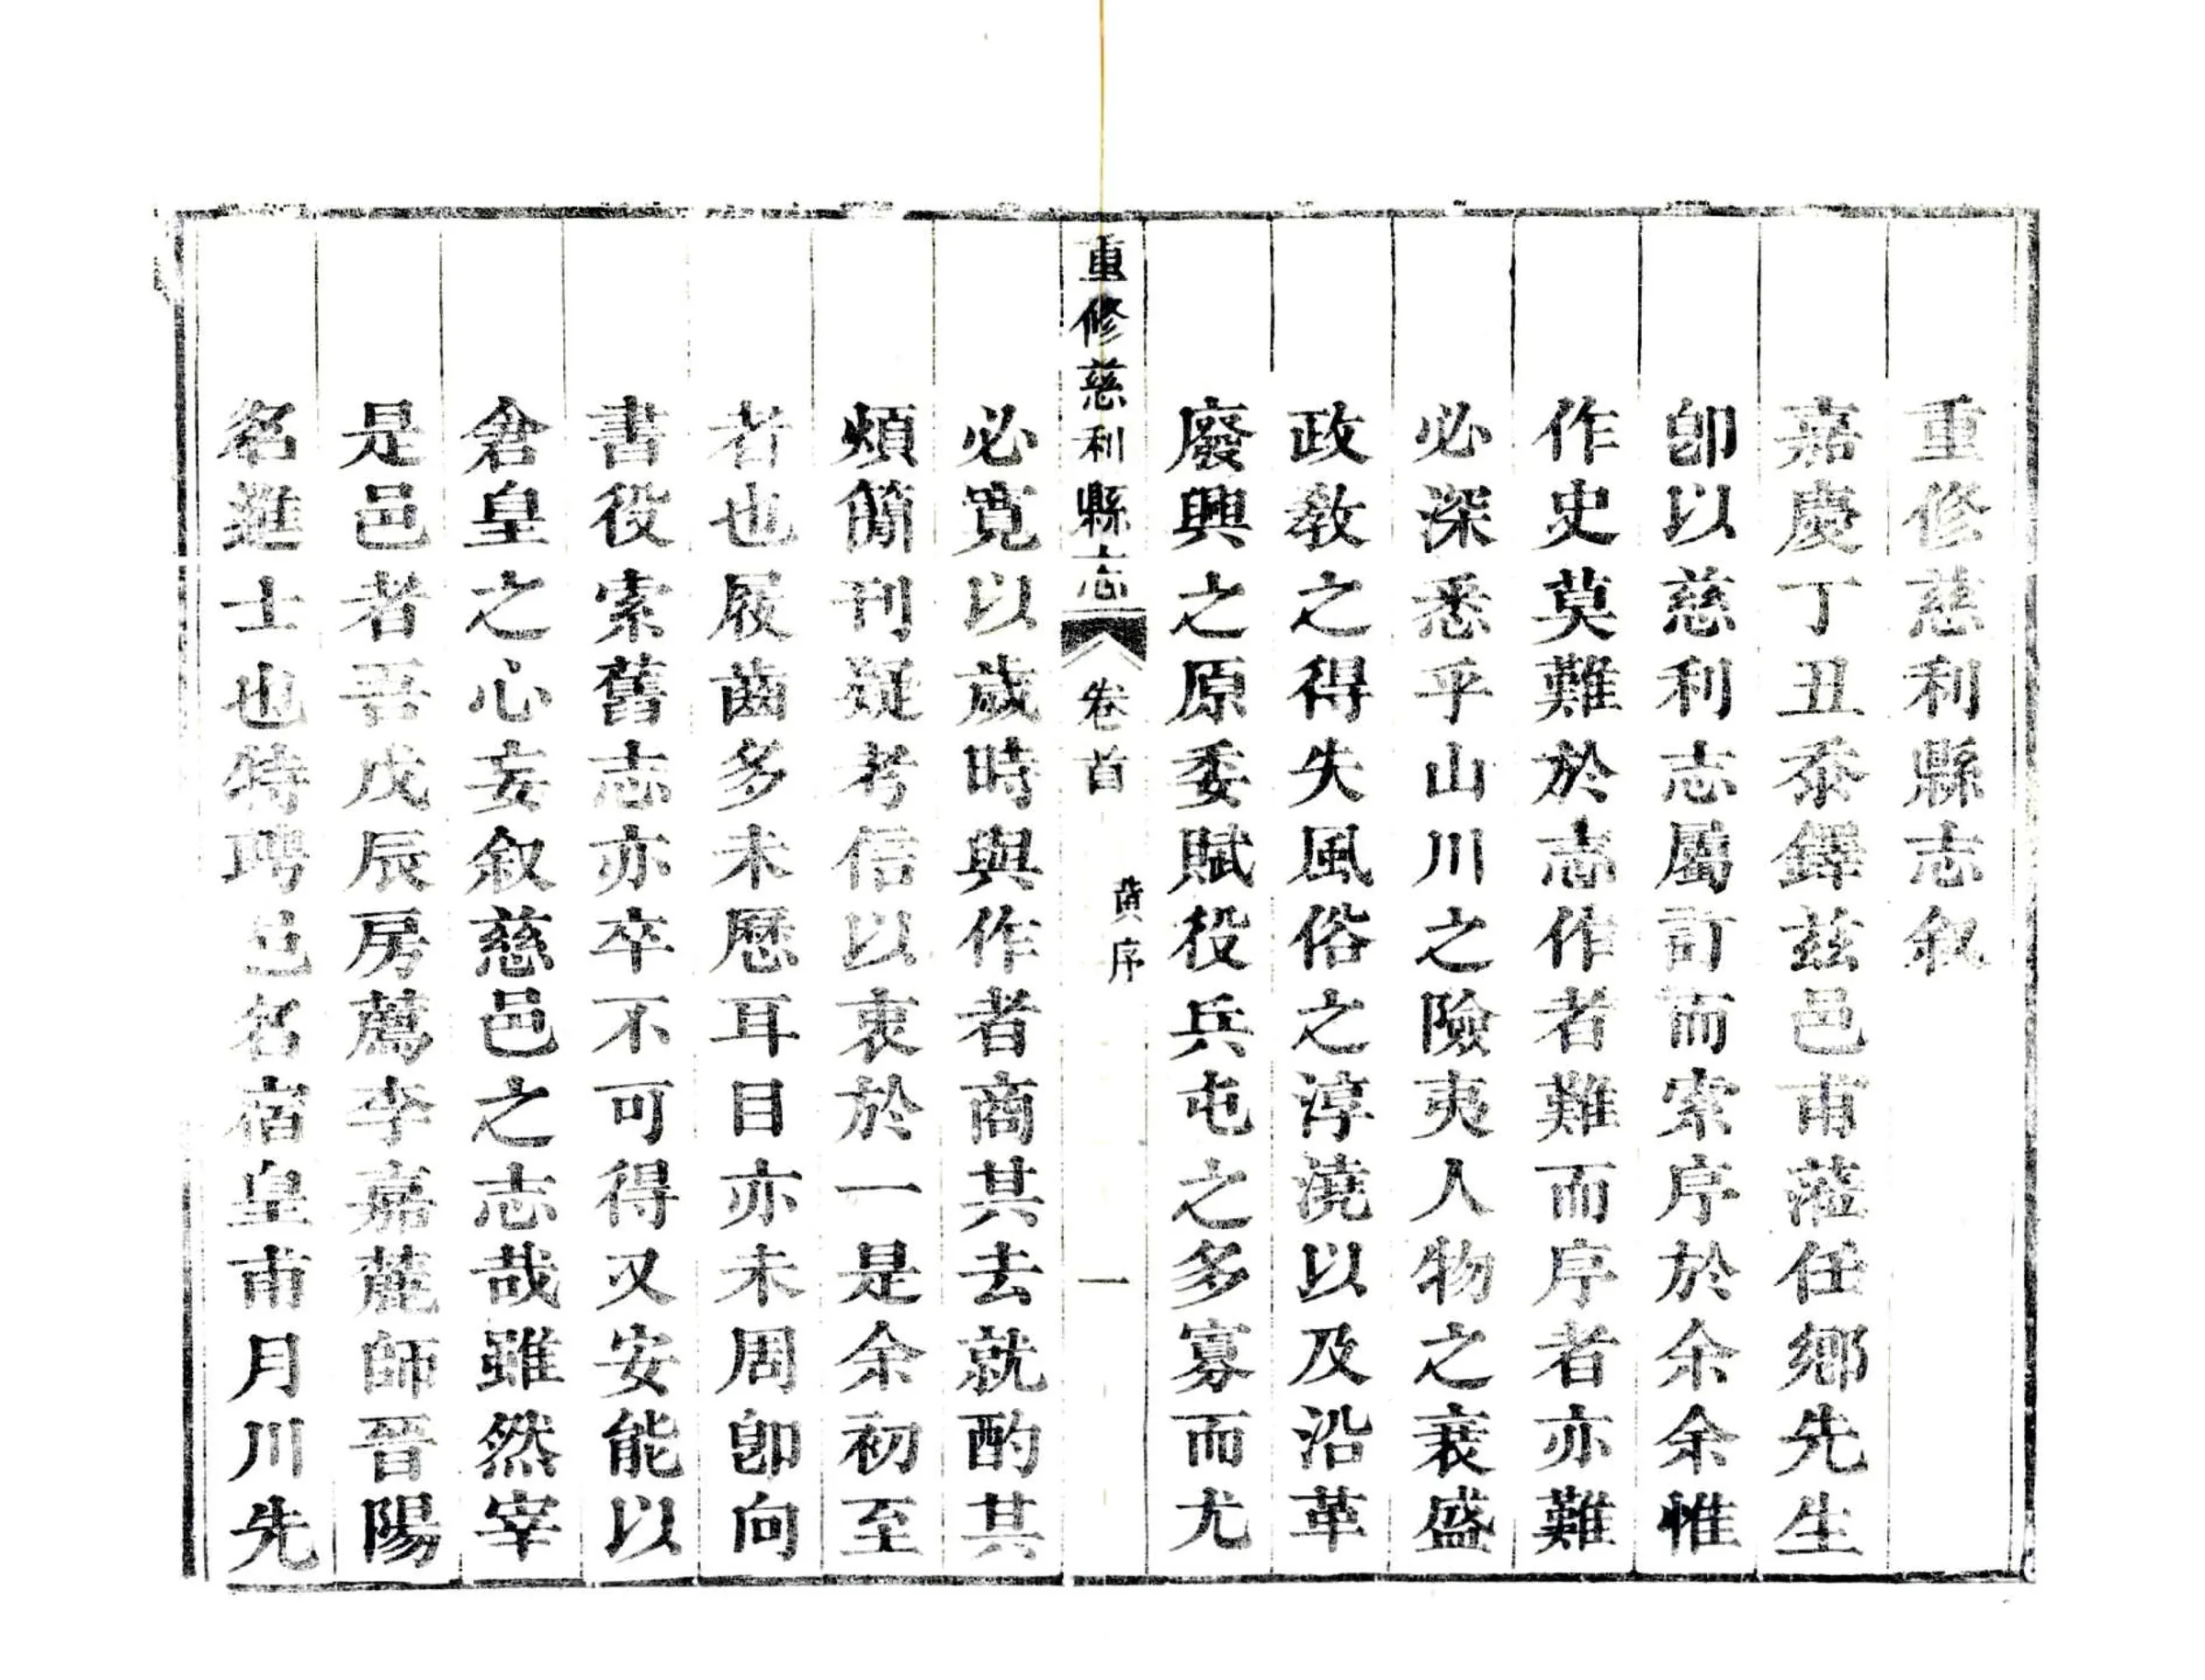 重修慈利縣志叙
嘉慶丁丑忝鐸茲邑甫蒞任鄉先生
卽以慈利志屬訂而索序於余余惟
作史莫難於志作者難而序者亦難
必深悉乎山川之險夷人物之衰盛
政教之得失風俗之淳澆以及沿革
廢興之原委賦役兵屯之多寡而尤
重修慈利縣志 卷首 黃序 一
必寬以歲時與作者商其去就酌其
煩簡刊疑考信以衷於一是余初至
者也屐齒多未歷耳目亦未周卽向
書役索舊志亦卒不可得又安能以
倉皇之心妄叙慈邑之志哉雖然宰
是邑者吾戊辰房薦李嘉麓師晉陽
名進士也特聘邑名宿皇甫月川先